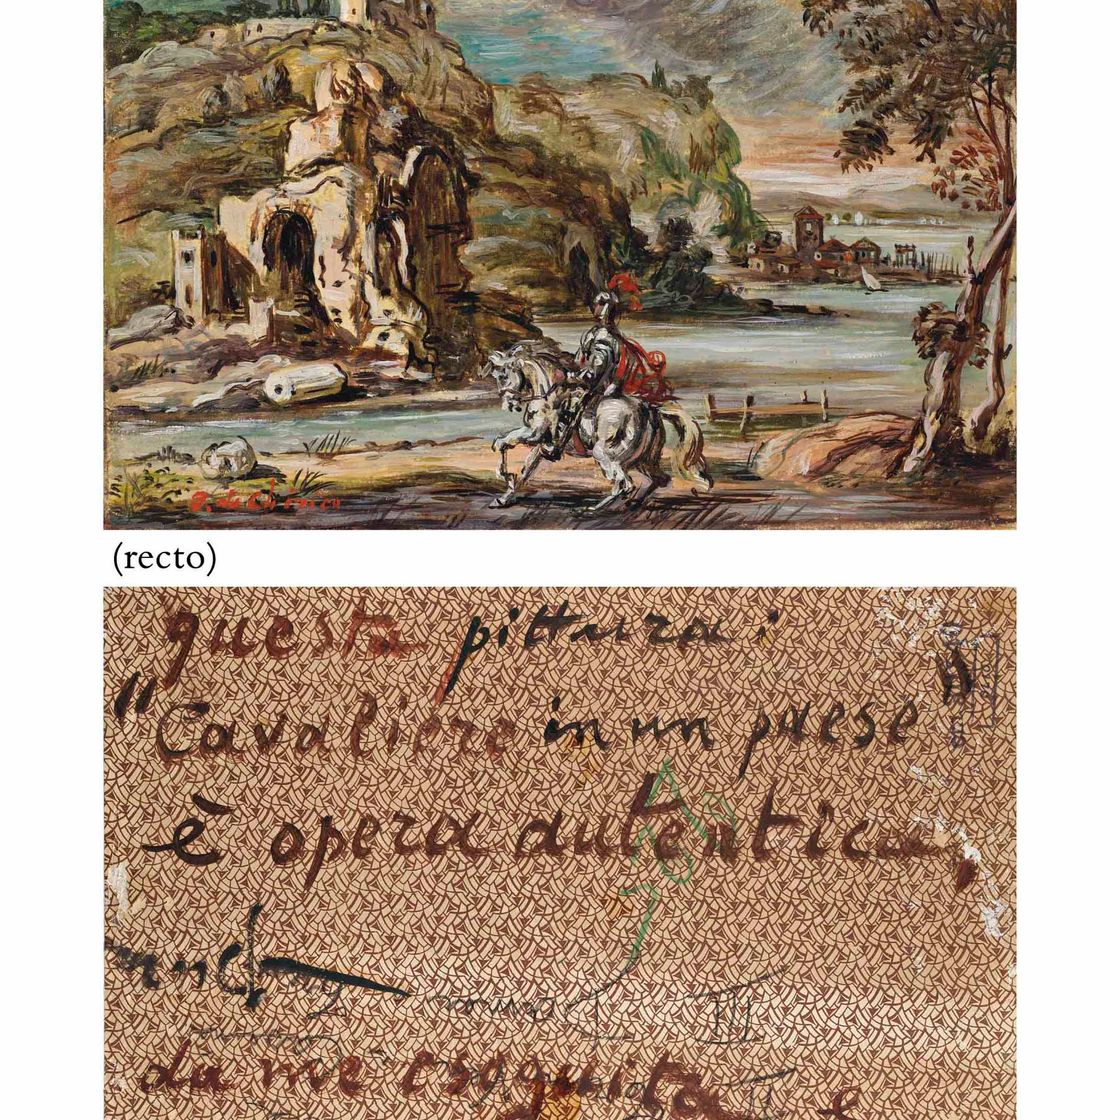 G. de Chirico
(recto)
questa pittura:
"Cavaliere in un paese"
è opera autentica,
da me eseguita e